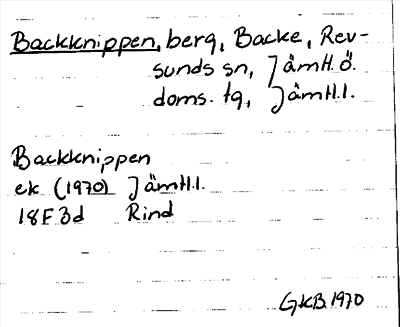 Backknippen, berg, Backe, Rev-
sunds sn, Jämtl. ö.
doms. tg, Jämtl. l.
Backknippen
ek (1970) Jämtl. l.
18F 3d Rind
GKB 1970